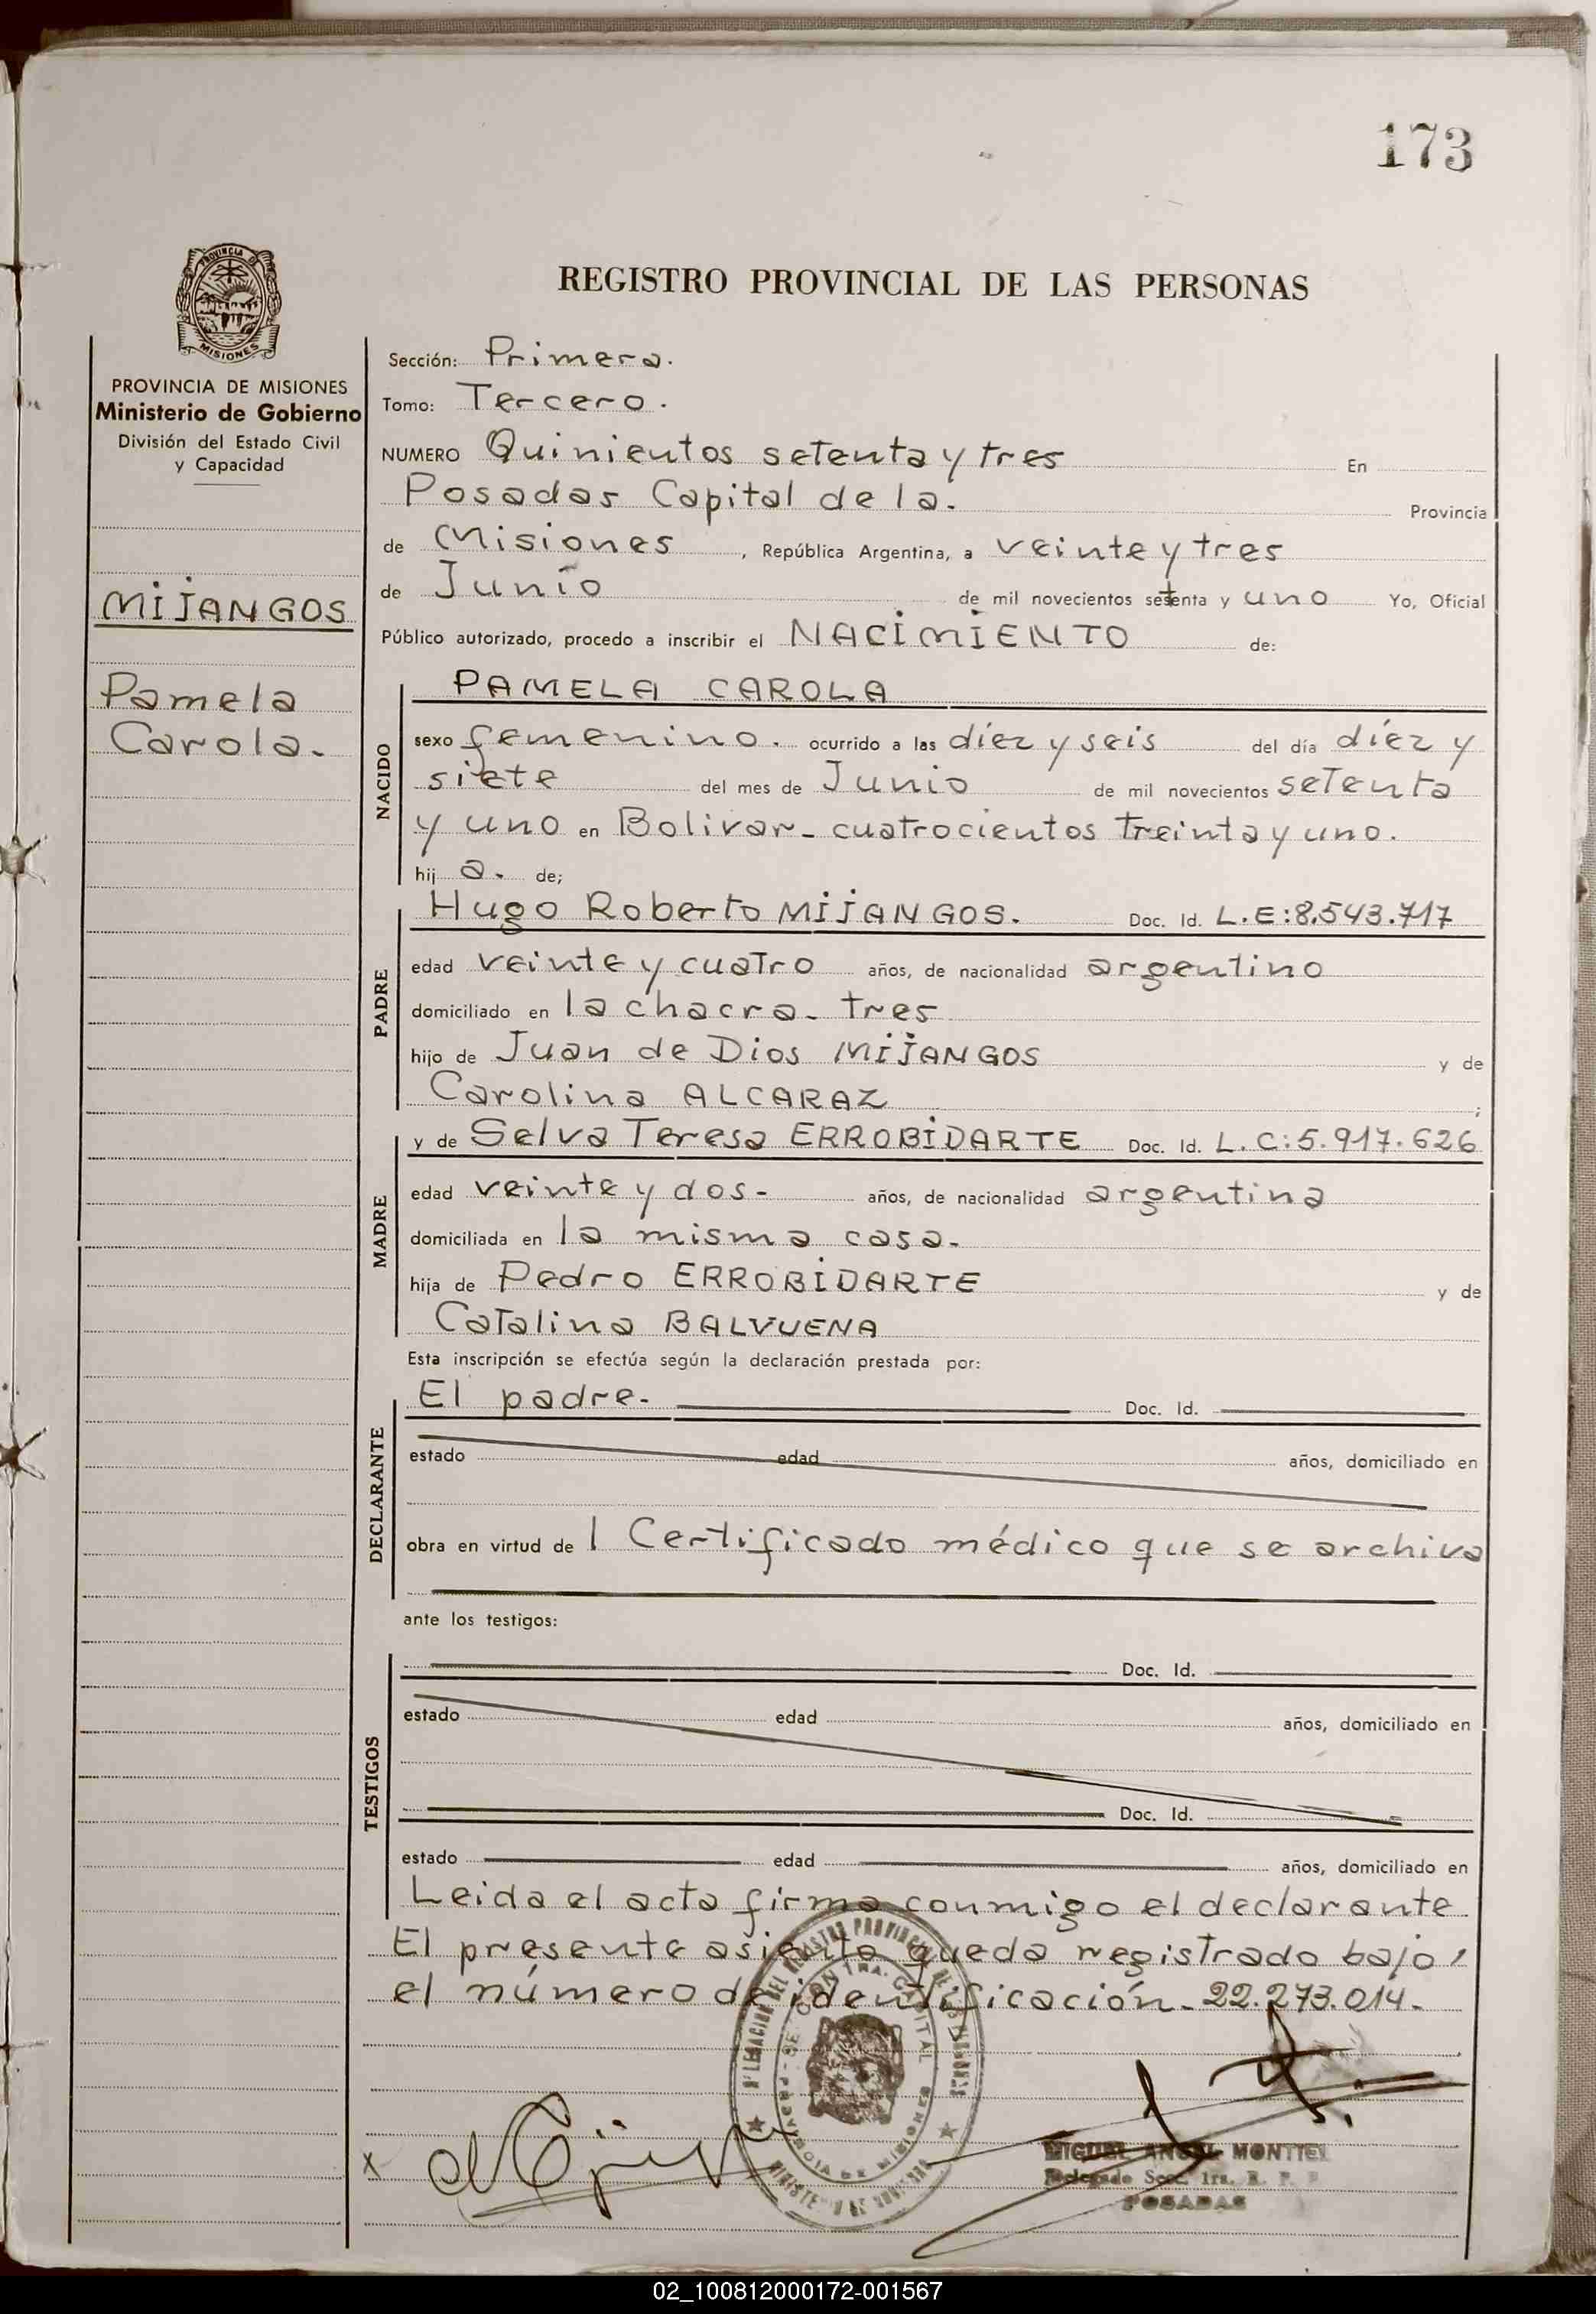 173
PROVINCIA DE
MISIONES
PROVINCIA DE MISIONES
Ministerio de Gobierno
División del Estado Civil
y Capacidad
MIJANGOS
Pamela
Carola.
REGISTRO PROVINCIAL DE LAS PERSONAS
Sección: Primera.
Tomo: Tercero.
NUMERO Quinientos setenta y tres En
Posadas Capital de la. Provincia
de Misiones, República Argentina, a veinte y tres
de Junio de mil novecientos setenta y uno Yo, Oficial
Público autorizado, procedo a inscribir el NACIMIENTO de:
NACIDO
PAMELA CAROLA
sexo femenino. ocurrido a las díez y seis del día díez y
siete del mes de Junio de mil novecientos setenta
y uno en Bolivar- cuatrocientos treinta y uno.
hij a. de;
PADRE
Hugo Roberto MIJANGOS. Doc. Id. L.E:8.543.717
edad veinte y cuatro años, de nacionalidad argentino
domiciliado en la chacra- tres
hijo de Juan de Dios MIJANGOS y de
Carolina ALCARAZ ;
MADRE
y de Selva Teresa ERROBIDARTE Doc. Id. L.C:5.917.626
edad veinte y dos- años, de nacionalidad argentina
domiciliada en la misma casa-
hija de Pedro ERROBIDARTE y de
Catalina BALVUENA
Esta inscripción se efectúa según la declaración prestada por:
DECLARANTE
El padre- Doc. Id.
estado edad años, domiciliado en
obra en virtud de l Certificado médico que se archiva
ante los testigos:
TESTIGOS
Doc. Id.
estado edad años, domiciliado en
Doc. Id.
estado edad años, domiciliado en
Leida el acta firma conmigo el declarante
El presente asiento queda registrado bajo
el número de identificación- 22.273.014-
x
MIGUEL ANGEL MONTIEL
Delegado Sec. 1ra. R. P. P.
POSADAS
02_100812000172-001567